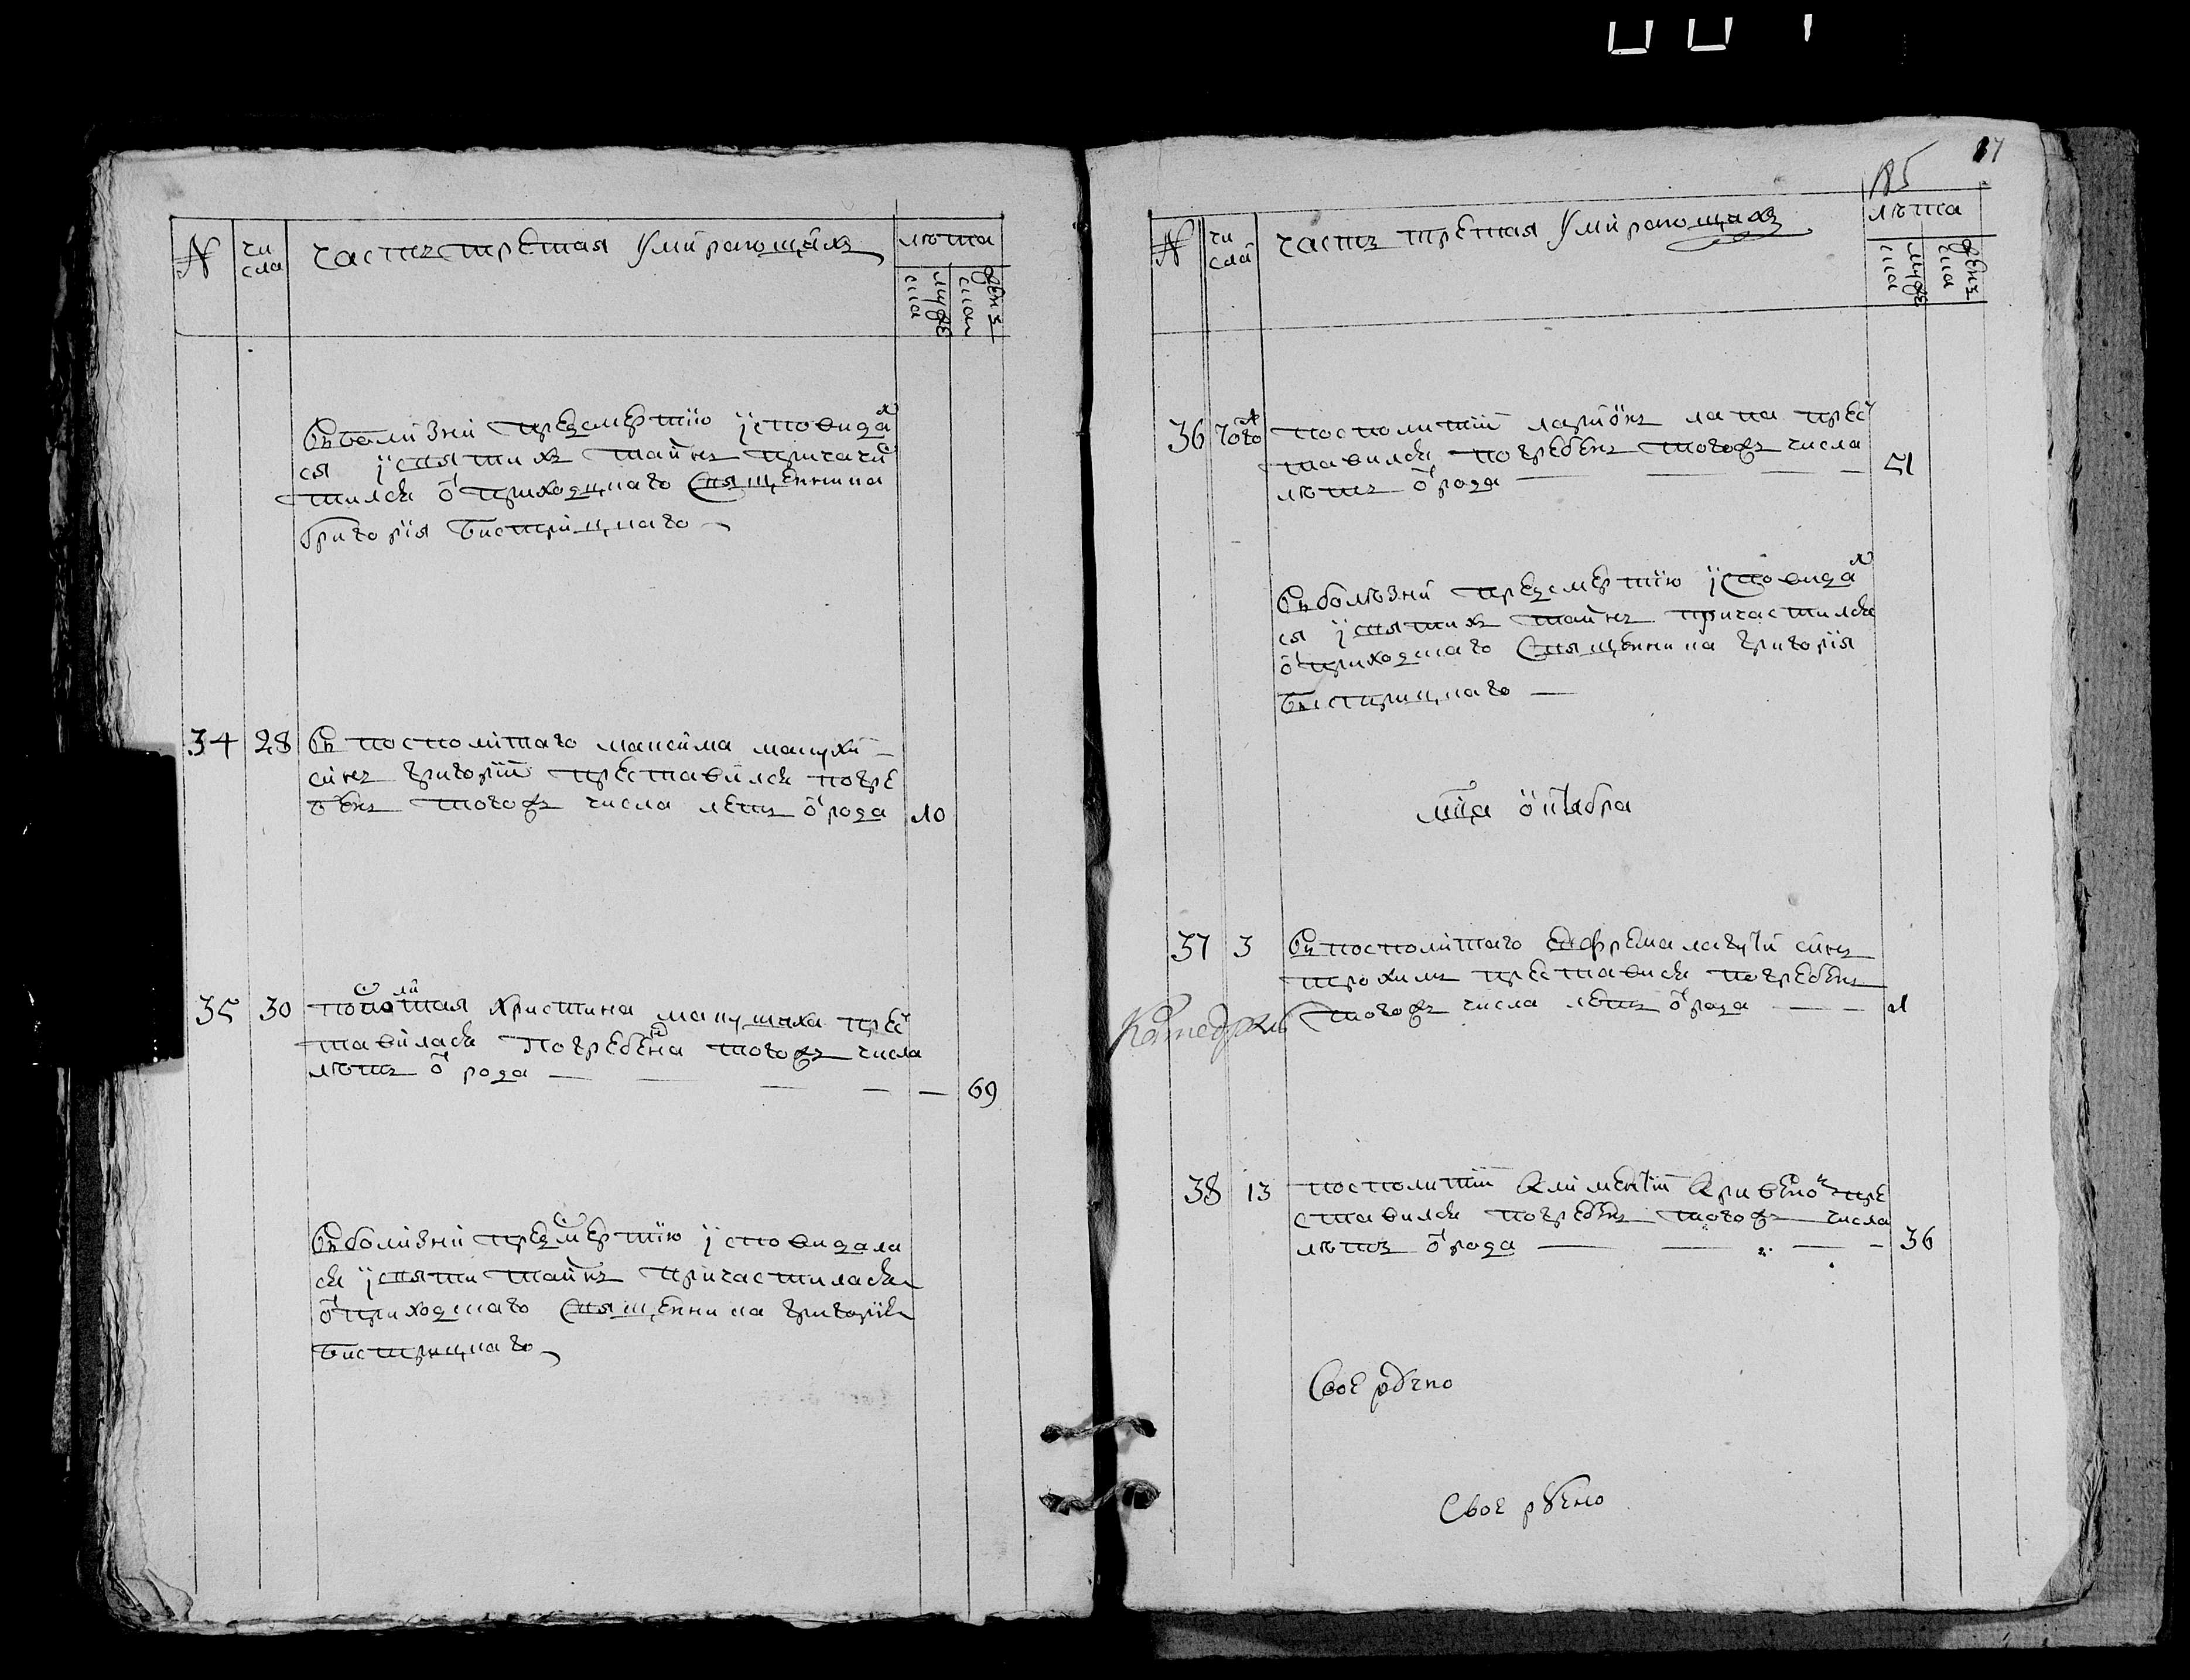 N чи
сла часть третая Умираю́щихъ лѣта
мужес
ска женъ
ска
Въ болизнѣ предсмертною исповида
ся и святихъ таинъ причачи
тился от приходцкаго Священника
Григория Бистрицкаго
34 28 В посполитаго максима мацухи
синъ григорий преставился погре
бенъ тогожъ числа летъ от рода 10
35 30 посполитая христина мацушиха прес
тавилася погребена тогожъ числа
лѣтъ от рода — 69
Въ болизнѣ предсмертною исповидала
ся и святи таинъ причастилася
от приходцкаго Священника григория
Бистрицкаго
87
N чи
сла часть третая Умираю́щихъ лѣта
мужес
ска женъ
ска
36 того посполитий ларионъ лапа прес
тавился погребенъ тогожъ числа
лѣтъ от рода — 51
Въ болѣзни предсмертною исповидал
ся и святихъ таинъ причастился
от приходцкаго Священника григория
Бистрицкаго —
мца октября
37 3 В посполитаго евфрема лагути синъ
трохимъ преставися погребенъ
тогожъ числа летъ от рода — 1
38 13 посполитий Климентий Кривенокъ пре
ставился погребенъ тогожъ числа
лѣтъ от рода — 36
Своеручно
Своеручно